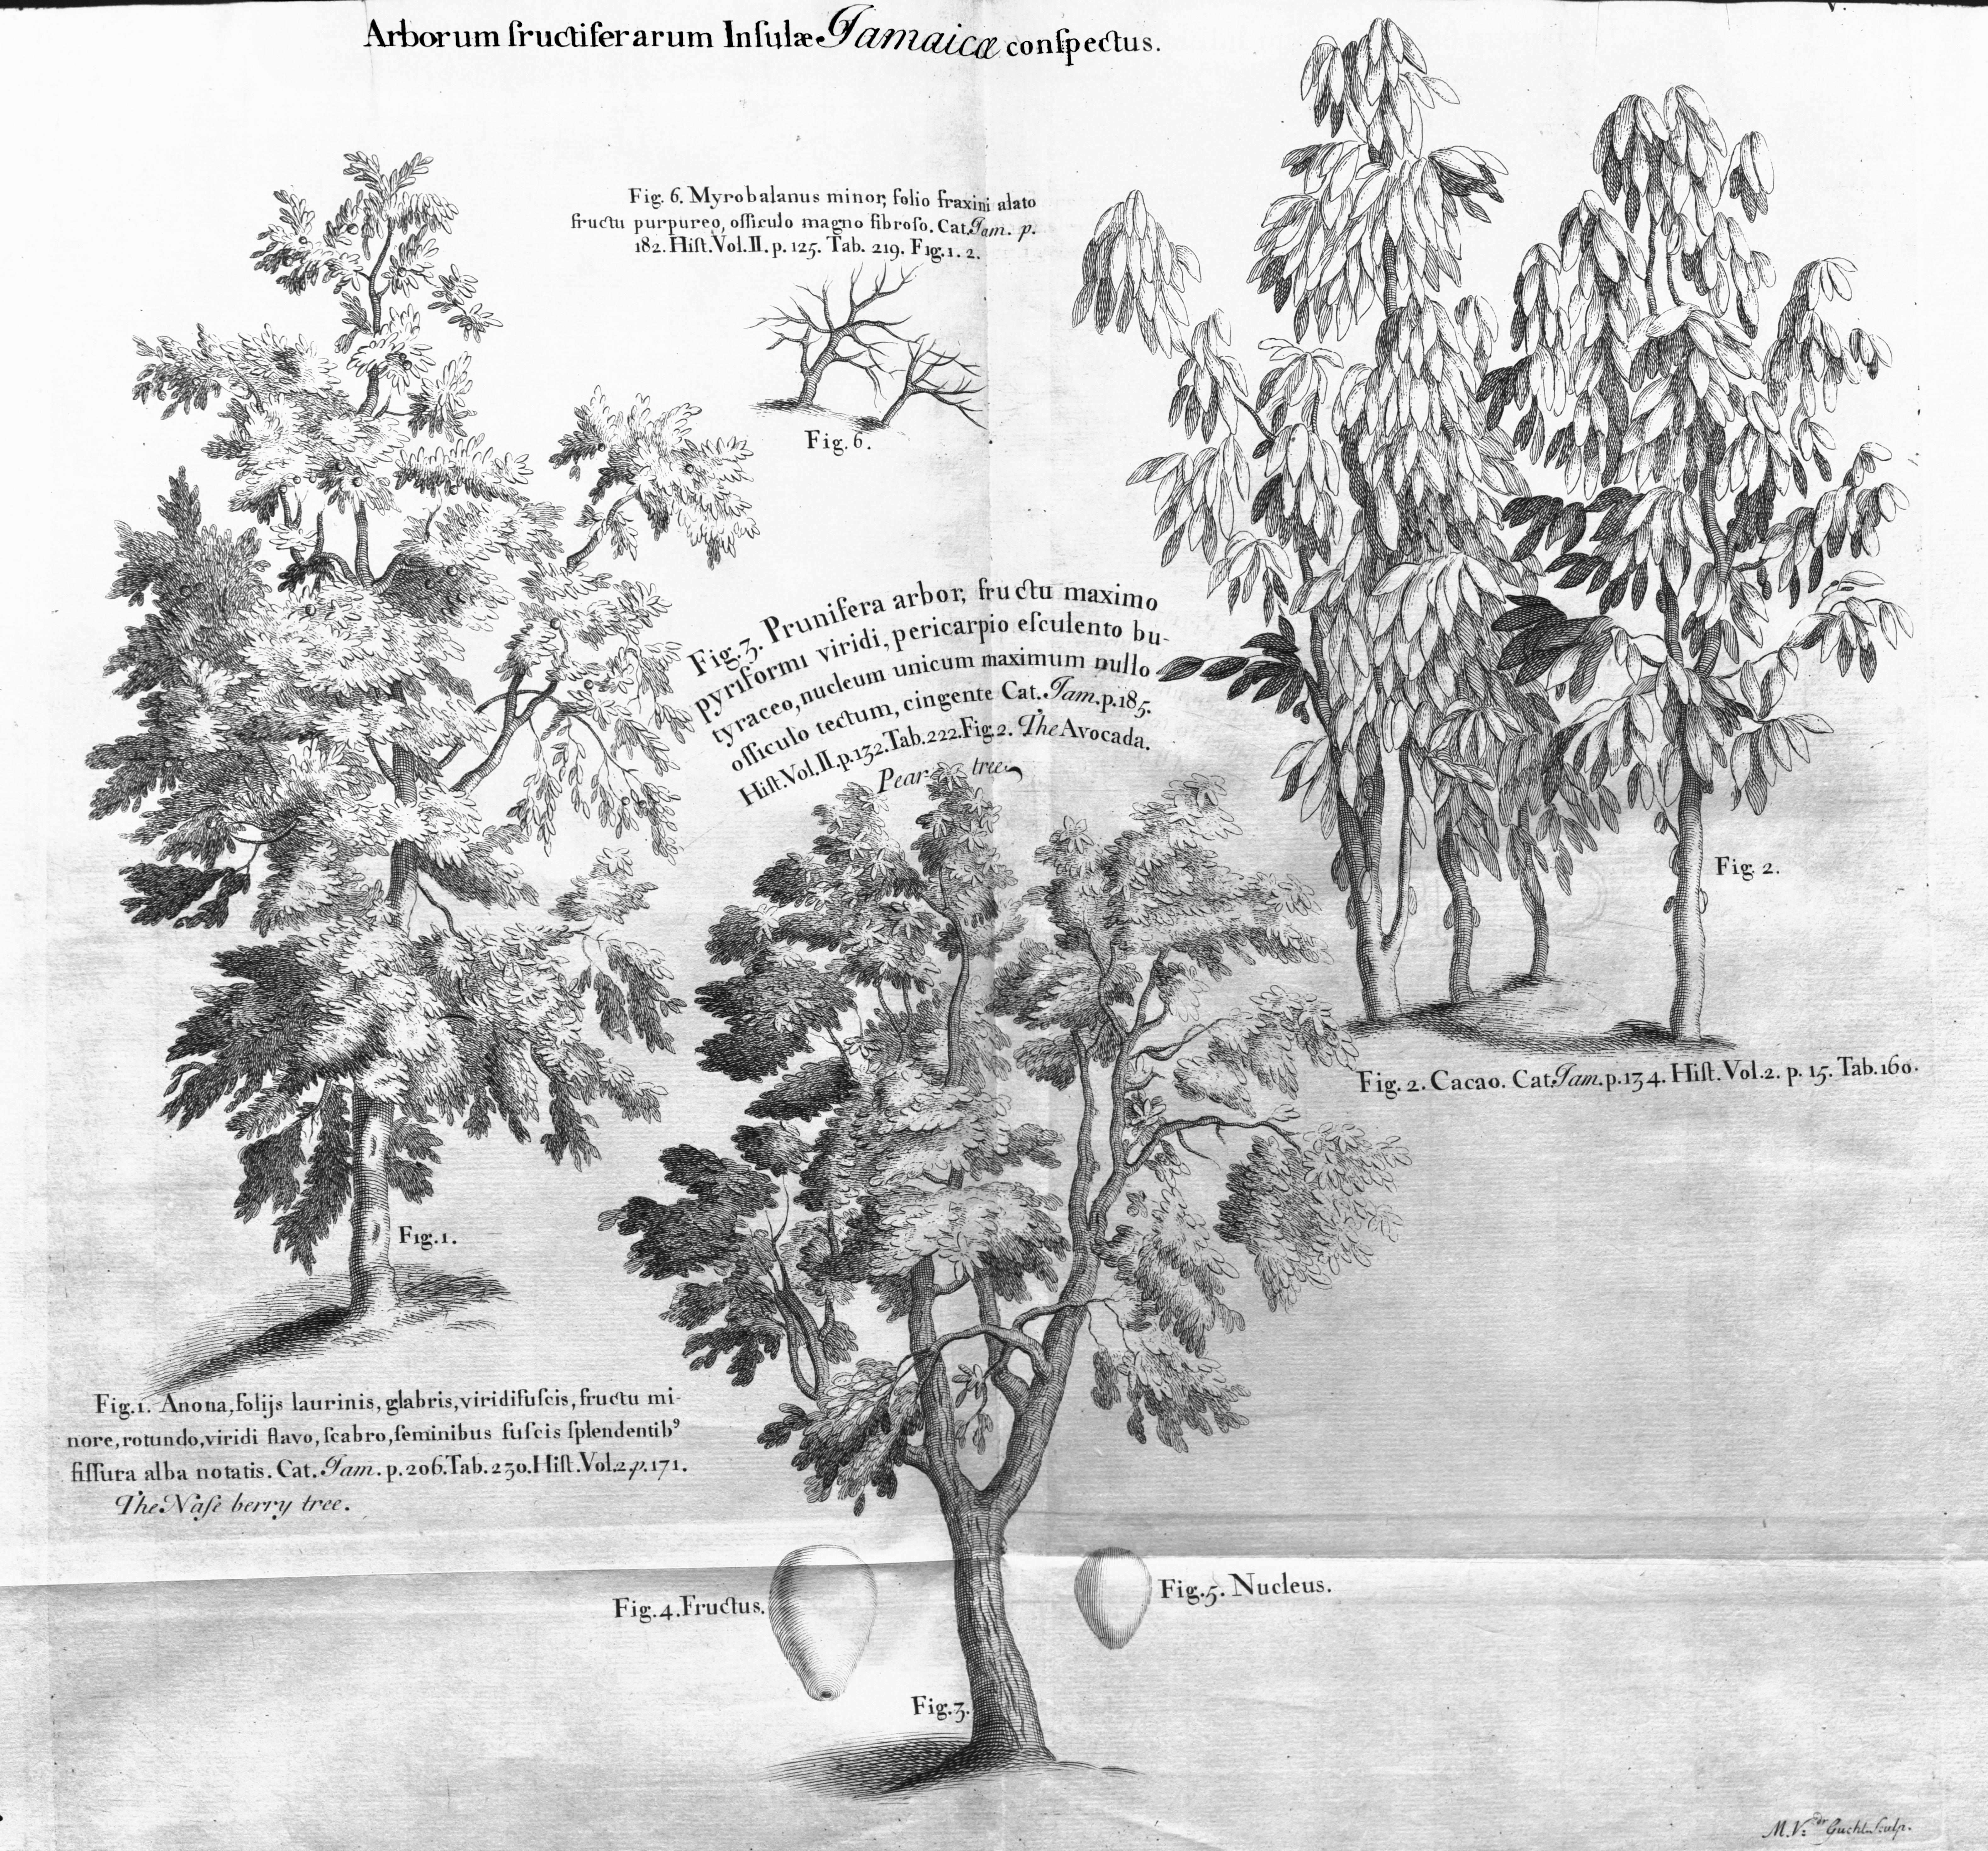 Arborum fructiferarum Inſulæ Jamaicæ conſpectus.
Fig. 6. Myrobalanus minor, folio fraxini alato
fructu purpureo, oſſiculo magno fibroſo. Cat. Jam. p.
182. Hiſt. Vol. II. p. 125. Tab. 219. Fig. 1. 2.
Fig. 6.
Fig. 3. Prunifera arbor, fructu maximo
pyriformi viridi, pericarpio eſculento bu-
tyraceo, nucleum unicum maximum nullo
oſſiculo tectum, cingente Cat. Jam. p. 185.
Hiſt. Vol. II. p. 132. Tab. 222. Fig. 2. The Avocada.
Pear tree
Fig. 2.
Fig. 2. Cacao. Cat Jam. p. 134. Hiſt. Vol. 2. p. 15. Tab. 160.
Fig. 1.
Fig. 1. Anona, folijs laurinis, glabris, viridifuſcis, fructu mi-
nore, rotundo, viridi flavo, ſcabro, ſeminibus fuſcis ſplendentibꝰ
fiſſura alba notatis. Cat. Jam. p. 206. Tab. 230. Hiſt. Vol. 2. p. 171.
The Naſe berry tree.
Fig. 4. Fructus.
Fig. 5. Nucleus.
Fig. 3.
M. V.dr Gucht Sculp.